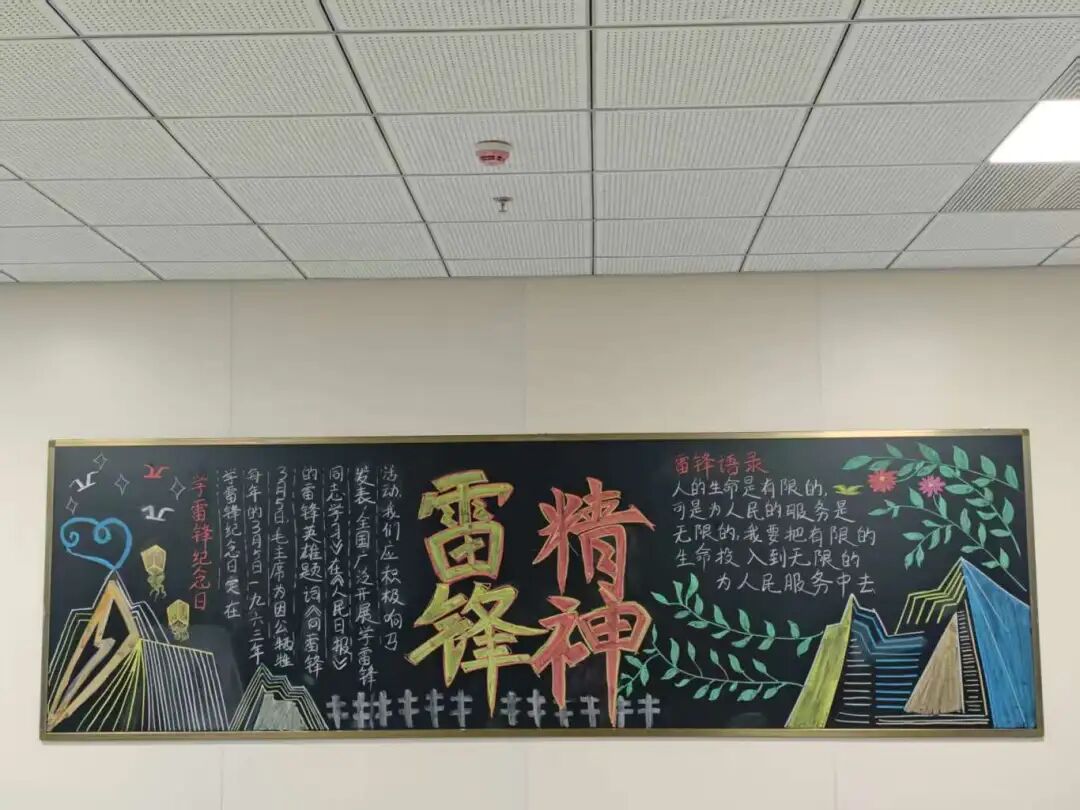 学雷锋纪念日
学雷锋纪念日定在
每年的3月5日一九六三年
3月5日,毛主席为因公牺牲
的雷锋英雄题词《向雷锋
同志学习》在《人民日报》
发表,全国广泛开展学雷锋
活动,我们应积极响
雷锋
精神
雷锋语录
人的生命是有限的,
可是为人民的服务是
无限的,我要把有限的
生命投入到无限的
为人民服务中去